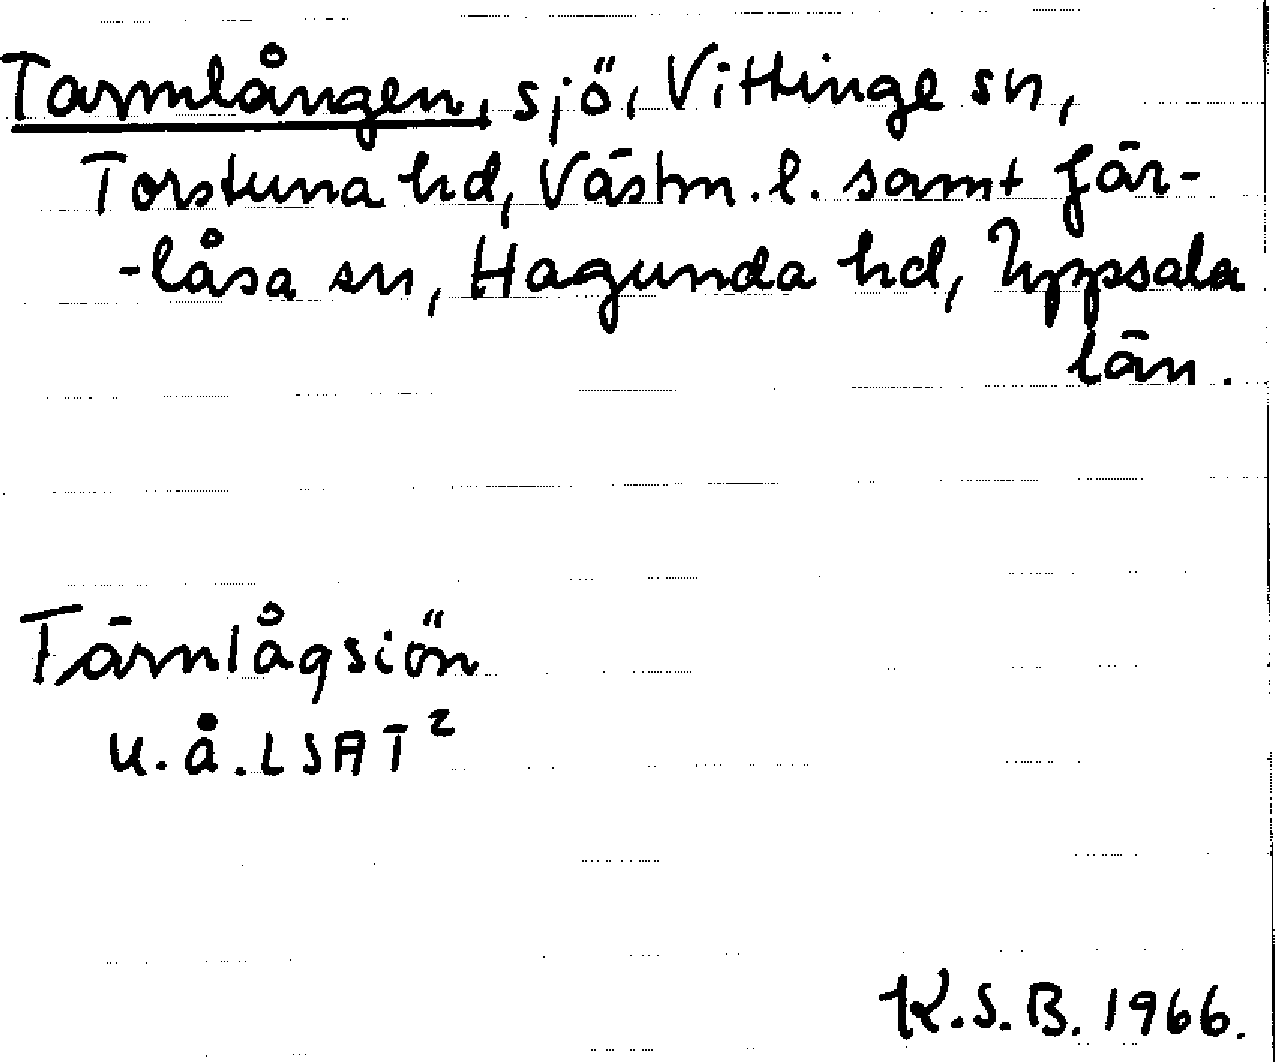 Tarmlången, sjö, Vittinge sn,
Torstuna hd, Västm. l. samt Jär-
-låsa sn, Hagunda hd, Uppsala
län.
Tärnlågsiön
u.å. LSAT²
K.S.B. 1966.